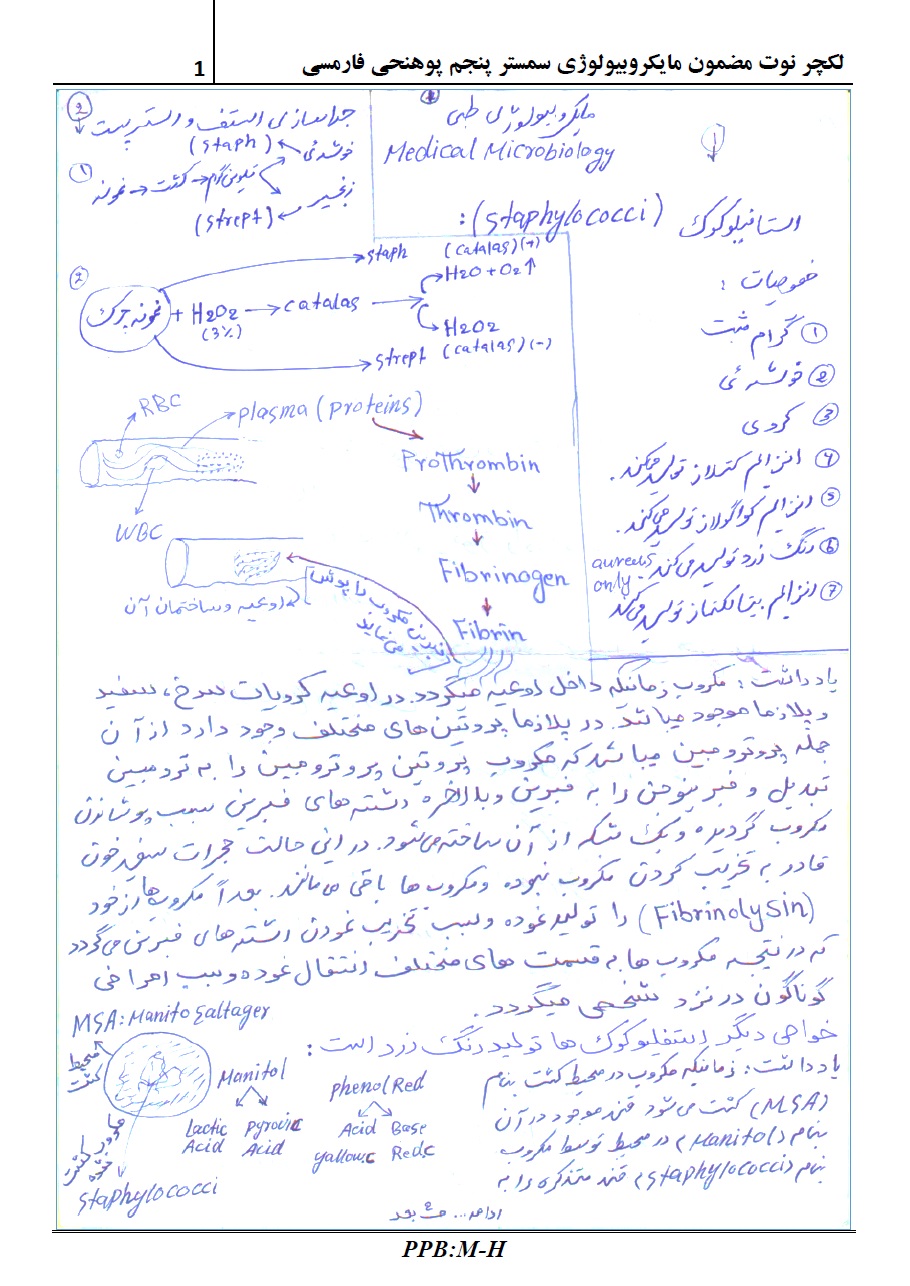 لکچر نوت مضمون مایکروبیولوژی سمستر پنجم پوهنحی فارمسی
1
مایکروبیولوژی طبی
Medical Microbiology
1
استافیلوکوک (Staphylococci) :
خصوصیات :
① گرام مثبت
② خوشه ئی
③ کروی
④ انزایم کتلاز تولید میکند.
⑤ انزایم کواگولاز تولید می‌کند.
⑥ رنگ زرد تولید می‌کند. aureus only
⑦ انزایم بیتالکتماز تولید می‌کند
2
جداسازی استف و استرپت
خوشه ئی (staph)
① نمونه → کشت → تلوین گرام
زنجیر (strept)
②
نمونه چرک + H2O2 (3%) → catalas
staph (catalas) (+)
H2O + O2↑
H2O2
strept (catalas) (-)
RBC
plasma (proteins)
WBC
Prothrombin
Thrombin
Fibrinogen
Fibrin
اوعیه و ساختمان آن
فابرین مکروب را پوش می نماید
یادداشت : مکروب زمانیکه داخل اوعیه میگردد. در اوعیه کرویات سرخ ، سفید
و پلازما موجود میباشد. در پلازما پروتین های مختلف وجود دارد از آن
جمله پروترومبین میباشد که مکروب پروتین پروترومبین را به ترومبین
تبدیل و فبرینوجن را به فبرین و بلاخره رشته های فبرین سبب پوشاندن
مکروب گردیده و یک شبکه از آن ساخته می‌شود. در این حالت حجرات سفید خون
قادر به تخریب کردن مکروب نبوده و مکروب ها باقی می مانند. بعداً مکروب ها از خود
(Fibrinolysin) را تولید نموده و سبب تخریب نمودن رشته های فبرین می گردد
که در نتیجه مکروب ها به قسمت های مختلف انتقال نموده و سبب امراض
گوناگون در نزد شخص میگردد.
خواص دیگر استفیلوکوک ها تولید رنگ زرد است :
یادداشت : زمانیکه مکروب در محیط کشت بنام
(MSA) کشت می شود قند موجود در آن
بنام (Manitol) در محیط توسط مکروب
بنام (staphylococci) قند متذکره را به
MSA: Manito Saltager
محیط کشت
مکروب کشت شده
staphylococci
Manitol
Lactic Acid
Pyrovic Acid
phenol Red
Acid yallow.c
Base Red.c
ادامه... ص بعد
PPB:M-H